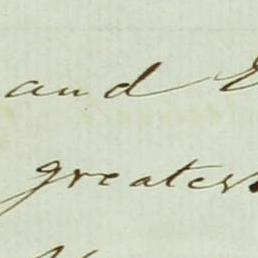 and
greatest